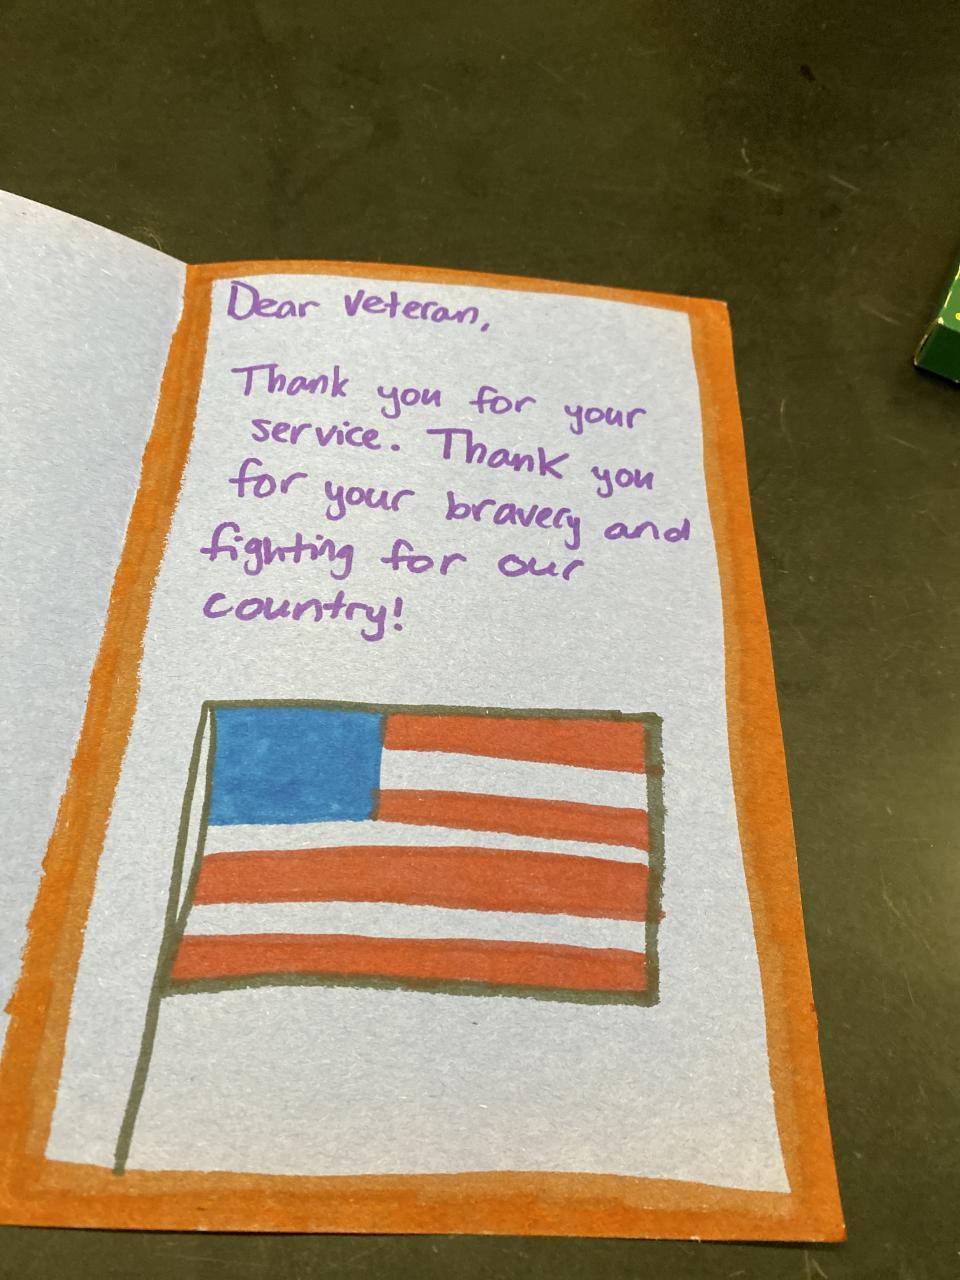 Dear Veteran,
Thank you for your
service. Thank you
for your bravery and
fighting for our
country!